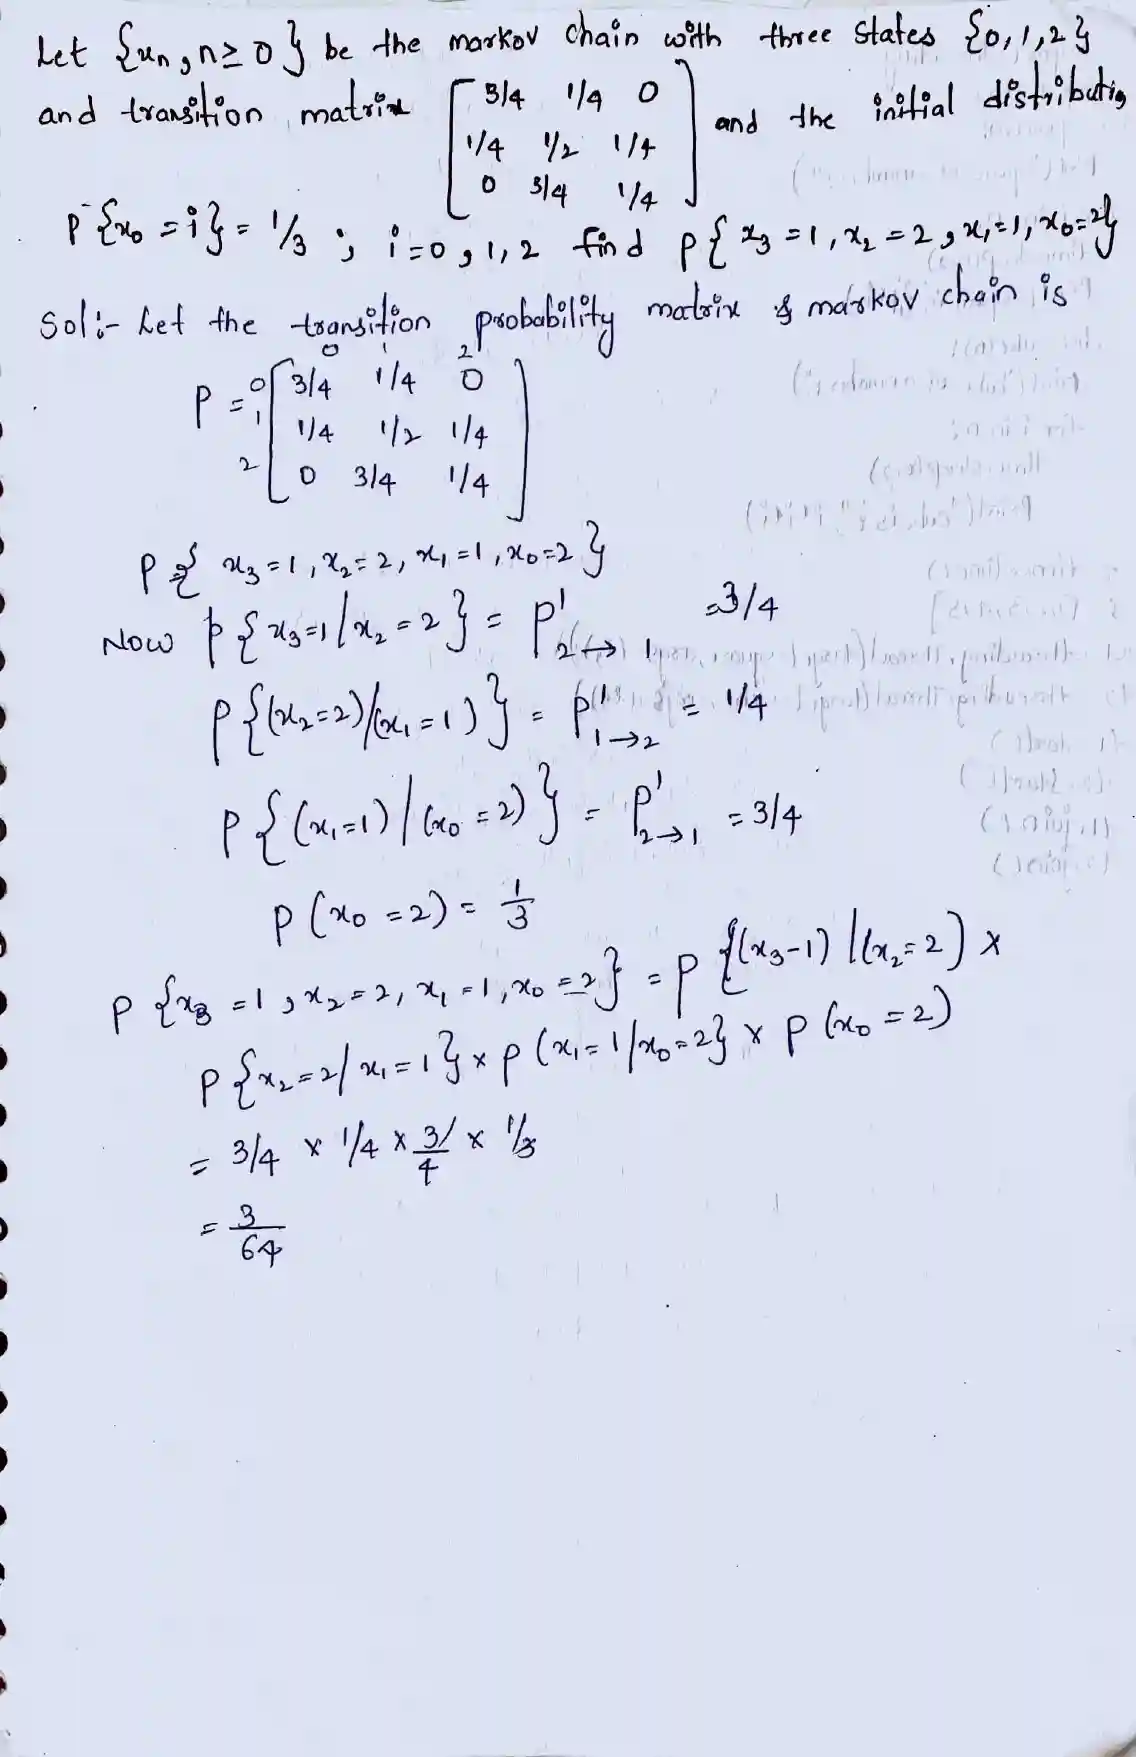 Let {xn, n≥0} be the markov chain with three states {0,1,2}
and transition matrix [3/4 1/4 0 and the initial distributio
1/4 1/2 1/4
0 3/4 1/4]
P{x0 = i} = 1/3 ; i=0,1,2 find p{x3=1, x2=2, x1=1, x0=2}
Sol:- Let the transition probability matrix of markov chain is
0 1 2
P = 0 [3/4 1/4 0
1 1/4 1/2 1/4
2 0 3/4 1/4]
P{x3=1, x2=2, x1=1, x0=2}
Now p{x3=1/x2=2} = P¹2→1 =3/4
P{(x2=2)/(x1=1)} = P¹1→2 = 1/4
P{(x1=1)/(x0=2)} = P¹2→1 = 3/4
P(x0=2) = 1/3
P{x3=1, x2=2, x1=1, x0=2} = P{(x3-1)/(x2=2) x
P{x2=2/x1=1} x P(x1=1/x0=2} x P(x0=2)
= 3/4 x 1/4 x 3/4 x 1/3
= 3/64